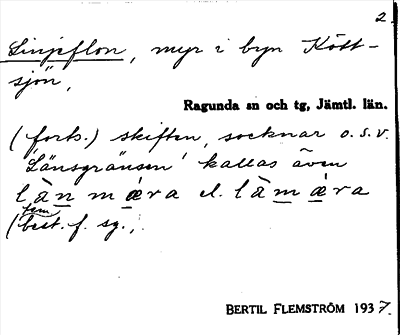 2.
Linjeflon, myr i byn Kött-
sjön,
Ragunda sn och tg, Jämtl. län.
(forts.) skiften, socknar o.s.v.
'Länsgränsen' kallas även
là̱n mǽra el. là̱mǽra
fem
(best. f. sg.,
BERTIL FLEMSTRÖM 1937.